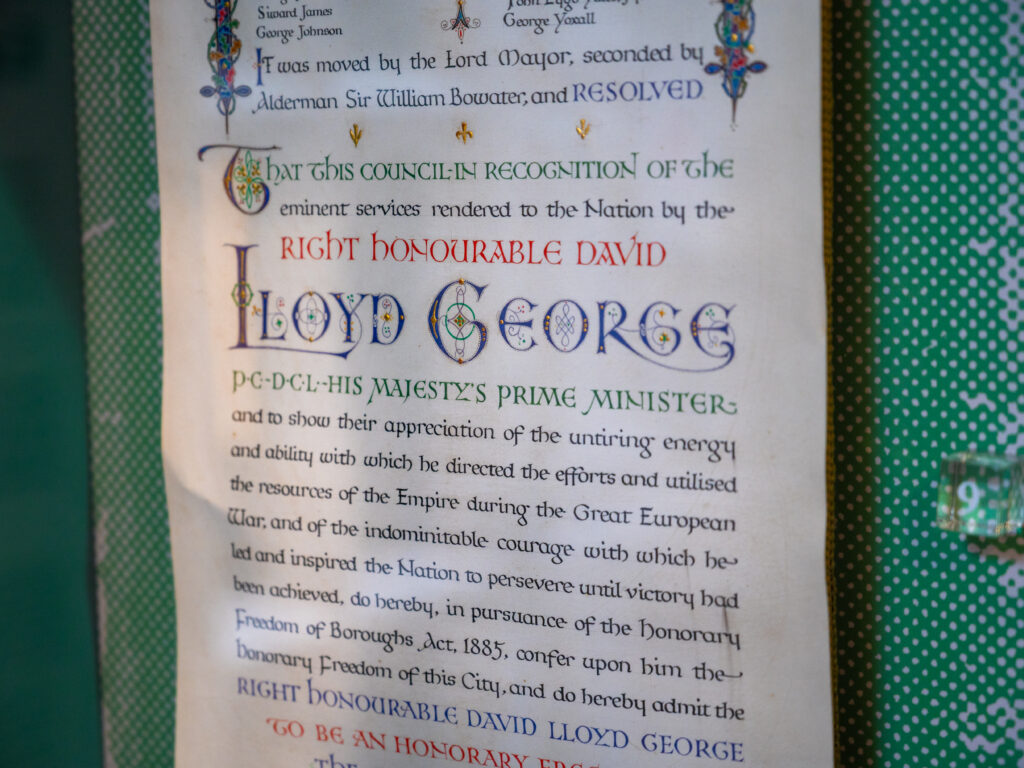 Siward James
George Johnson
George Yoxall
IT was moved by the Lord Mayor, seconded by
Alderman Sir William Bowater, and RESOLVED
THAT THIS COUNCIL·IN RECOGNITION OF THE
eminent services rendered to the Nation by the
RIGHT HONOURABLE DAVID
LLOYD GEORGE
P·C·D·C·L·HIS MAJESTY'S PRIME MINISTER
and to show their appreciation of the untiring energy
and ability with which he directed the efforts and utilised
the resources of the Empire during the Great European
War, and of the indominitable courage with which he
led and inspired the Nation to persevere until victory had
been achieved, do hereby, in pursuance of the Honorary
Freedom of Boroughs Act, 1885, confer upon him the
honorary Freedom of this City, and do hereby admit the
RIGHT HONOURABLE DAVID LLOYD GEORGE
TO BE AN HONORARY
THE
9